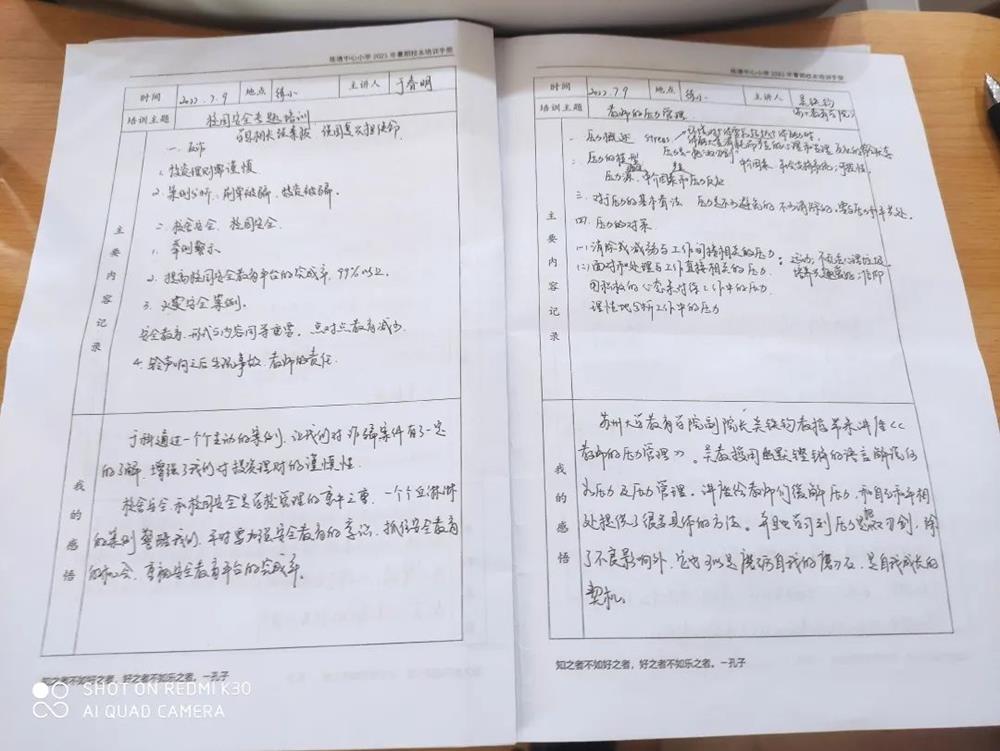 培塘中心小学2021年暑期校本培训手册
时间 2022.7.9 地点 徐小 主讲人 于春明
培训主题 校园安全专题培训
主要内容记录
一. 反诈
1. 投资理财需谨慎
2. 案例分析: 刷单被骗, 投资被骗。
二. 校舍安全、校园安全
1. 案例警示
2. 提高校园安全教育平台的完成率, 99%以上
3. 火灾安全案例。
安全教育, 形式与内容同等重要, 点对点教育减少
4. 铃声响之后出现事故, 教师的责任.
我的感悟
于科通过一个个生动的案例, 让我们对诈骗案件有了一定
的了解, 增强了我们对投资理财的谨慎性.
校舍安全和校园安全是学校管理的重中之重, 一个个血淋淋
的案例警醒我们, 平时要加强安全教育的意识, 抓住安全教育
的机会, 重视安全教育平台的完成率。
知之者不如好之者,好之者不如乐之者。—孔子
SHOT ON REDMI K30
AI QUAD CAMERA
中心小学2021年暑期校本培训手册
时间 2022.7.9 地点 徐小 主讲人 吴铁钧
培训主题 教师的压力管理
主要内容记录
一. 压力概述 stress
二. 压力的模型
压力源、中介因素和压力反应
三. 对于压力的基本看法 压力是不可避免的 不可消除的, 要与压力和平共处.
四. 压力的对策
(一) 消除或减弱与工作间接相关的压力
(二) 面对和处理与工作直接相关的压力
用积极的心态来对待工作中的压力
理性地分析工作中的压力
我的感悟
苏州大学教育学院副院长吴铁钧教授带来讲座《
教师的压力管理》。吴教授用幽默铿锵的语言解说何
为压力及压力管理。讲座给教师们缓解压力, 和自己和平相
处提供了很多具体的方法。并且学习到压力是把双刃剑, 除
了不良影响外, 它也可以是磨砺自我的磨刀石, 是自我成长的
契机。
知之者不如好之者,好之者不如乐之者。—孔子